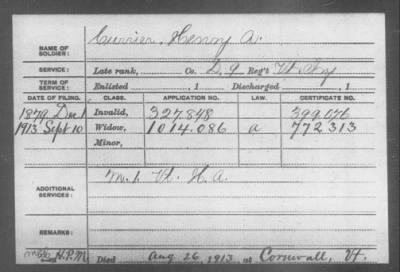 NAME OF SOLDIER: Currier, Henry A.
SERVICE: Late rank, Co. D. 9 Reg't Vt. Inf
TERM OF SERVICE: Enlisted , 1 Discharged , 1
DATE OF FILING. CLASS. APPLICATION NO. LAW. CERTIFICATE NO.
1879 Dec 1 Invalid, 327.848 399.076
1913 Sept 10 Widow, 1014.086 a 772.313
Minor,
ADDITIONAL SERVICES: M. 1. Vt. H. A.
REMARKS:
Died Aug 26, 1913, at Cornwall, Vt.